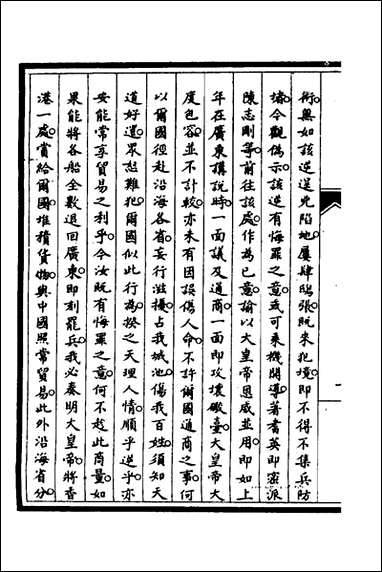 術無如該逆迭先陷地屢肆鴟張既來犯境即不得不集兵防
堵今觀偽示該逆有悔罪之意或可乘機開導著耆英即密派
陳志剛等前往該處作為已意諭以大皇帝恩威並用即如上
年在廣東搆説時一面議及通商一面即攻壞礮臺大皇帝大
度包容並不計較亦未有因誤傷人命不許爾國通商之事何
以爾國徑赴沿海各省妄行滋擾占我城池傷我百姓須知天
道好還眾怒難犯爾國似此行為揆之天理人情順乎逆乎亦
安能常享貿易之利乎今汝既有悔罪之意何不趁此商量如
果能將各船全數退回廣東即刻罷兵我必奏明大皇帝將香
港一處賞給爾國堆積貨物與中國照常貿易此外沿海省分